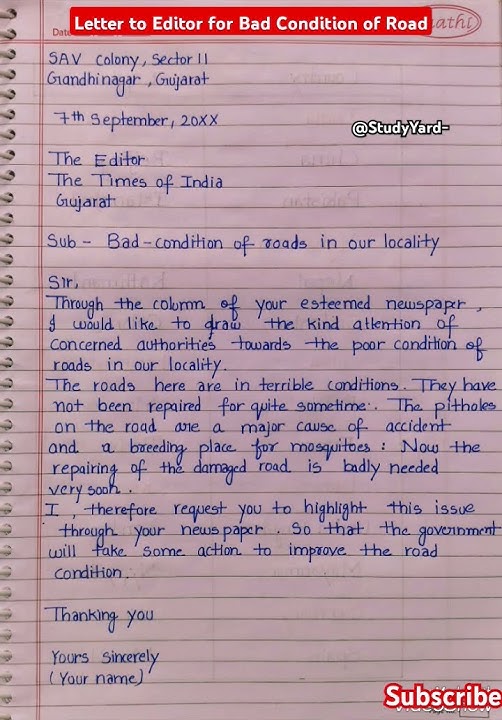 Letter to Editor for Bad Condition of Road
SAV colony, Sector 11
Gandhinagar, Gujarat
7th September, 20XX
@StudyYard-
The Editor
The Times of India
Gujarat
Sub - Bad-condition of roads in our locality
Sir,
Through the column of your esteemed newspaper,
I would like to draw the kind attention of
concerned authorities towards the poor condition of
roads in our locality.
The roads here are in terrible conditions. They have
not been repaired for quite sometime. The pitholes
on the road are a major cause of accident
and a breeding place for mosquitoes: Now the
repairing of the damaged road is badly needed
very soon.
I, therefore request you to highlight this issue
through your news paper. So that the government
will take some action to improve the road
condition.
Thanking you
Yours sincerely
(Your name)
Subscribe